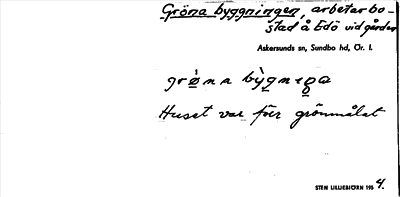 Gröna byggningen, arbetarbo-
stad å Edö vid gården
Askersunds sn, Sundbo hd, Ör. l.
Huset var förr grönmålat
STEN LILLIEBJÖRN 195 4.